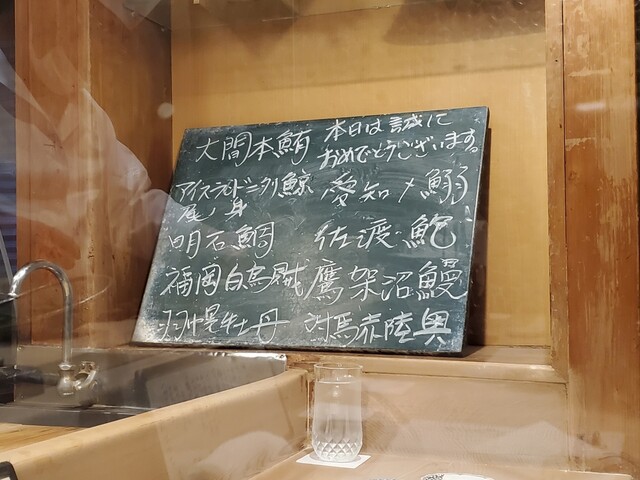 大間本鮪
本日は誠に
おめでとうございます。
アイスランドニタリ鯨
尾ノ身
愛知〆鰯
明石鯛
佐渡 鮑
福岡白烏賊
鷹架沼鰻
牡丹
対馬赤陸奥